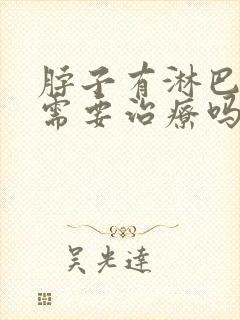 脖子有淋巴
需要治疗吗
吴光达